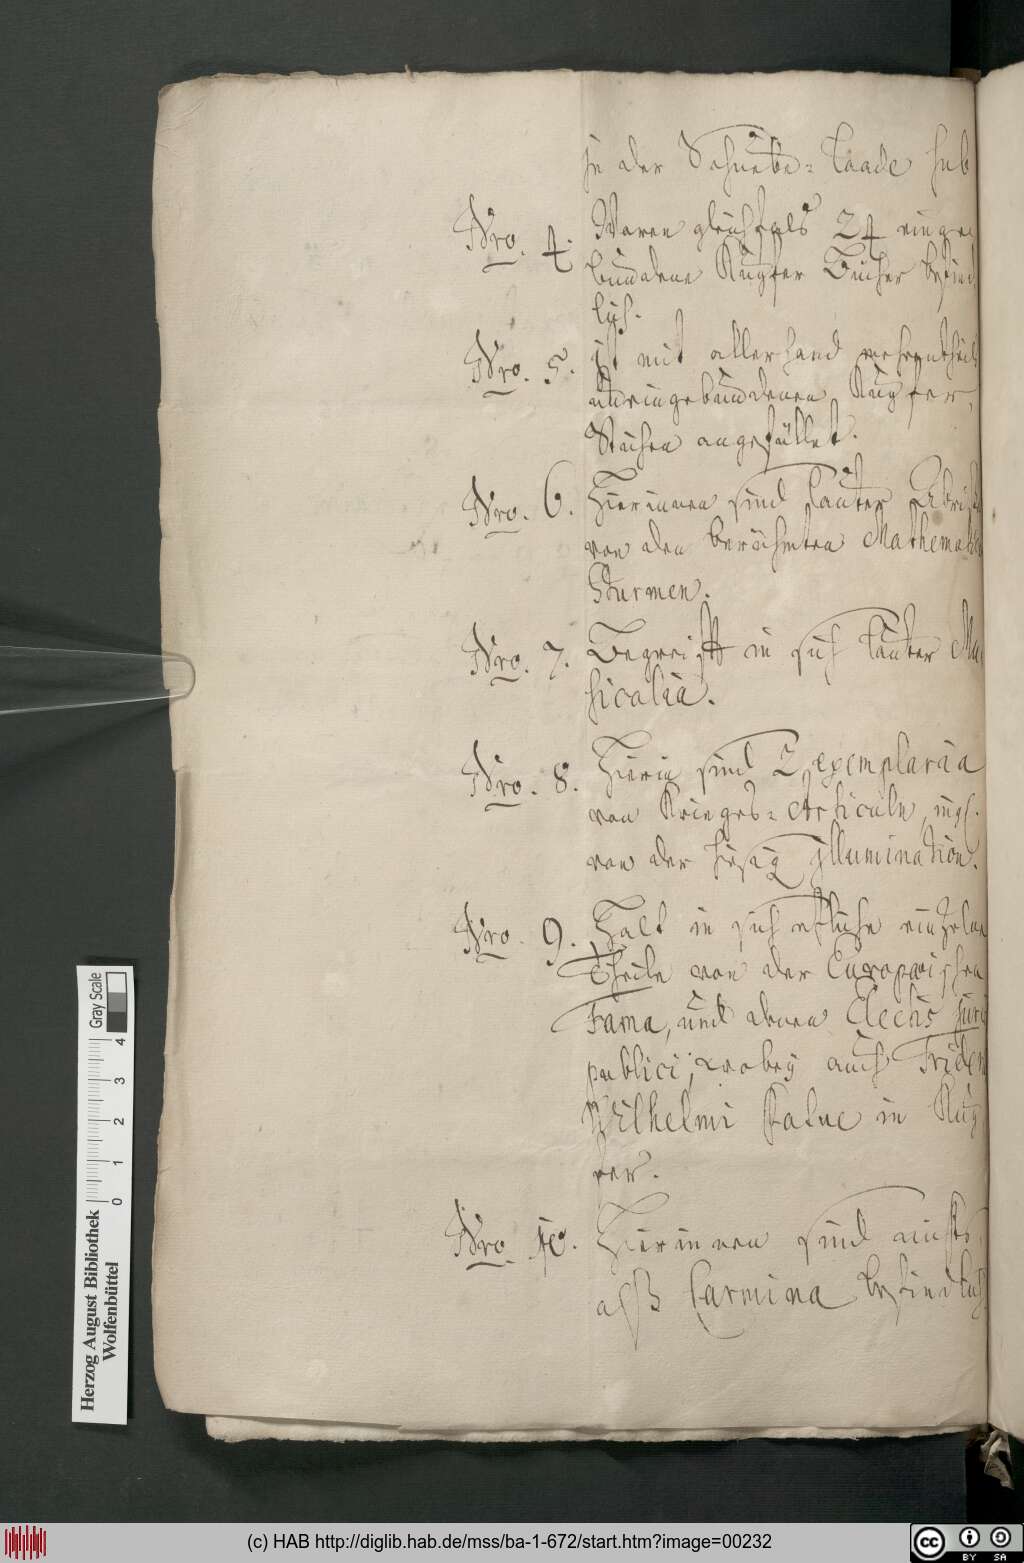 in der Schuebe-Laade sub
Nro. 4. Waren gleichfals 24 einge
bundene Kupfer Bücher befind
lich.
Nro. 5. ist mit allerhand mehrentheils
uneingebundenen Kupfer,
Stichen angefüllet.
Nro. 6. Hierinnen sind lauter Abriße
von den berühmten Mathemat
Sturmen.
Nro. 7. Begreifft in sich lauter Mu
sicalia.
Nro. 8. Hierin sind 2 exemplaria
von Krieges-Articuln, ingl.
von der hiesig illumination.
Nro. 9. Halt in sich etliche einzelne
Theile von der Europaeischen
Fama, und denen Electis juris
publici, wobey auch Frider
Wilhelmi in Kup
fer.
Nro. 10. Hierinnen sind nichts
alß Carmina befindlich
Gray Scale
0 1 2 3 4
Herzog August Bibliothek
Wolfenbüttel
(c) HAB http://diglib.hab.de/mss/ba-1-672/start.htm?image=00232
cc BY SA